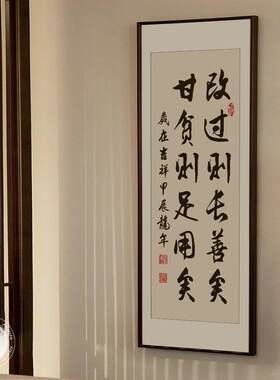 改过则长善矣
甘贫则足用矣
岁在吉祥甲辰龍年